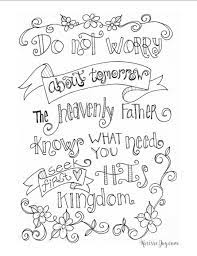 Do not WORRY
about tomorrow
The heavenly Father
Knows WHAT YOU need
seek first His
Kingdom.